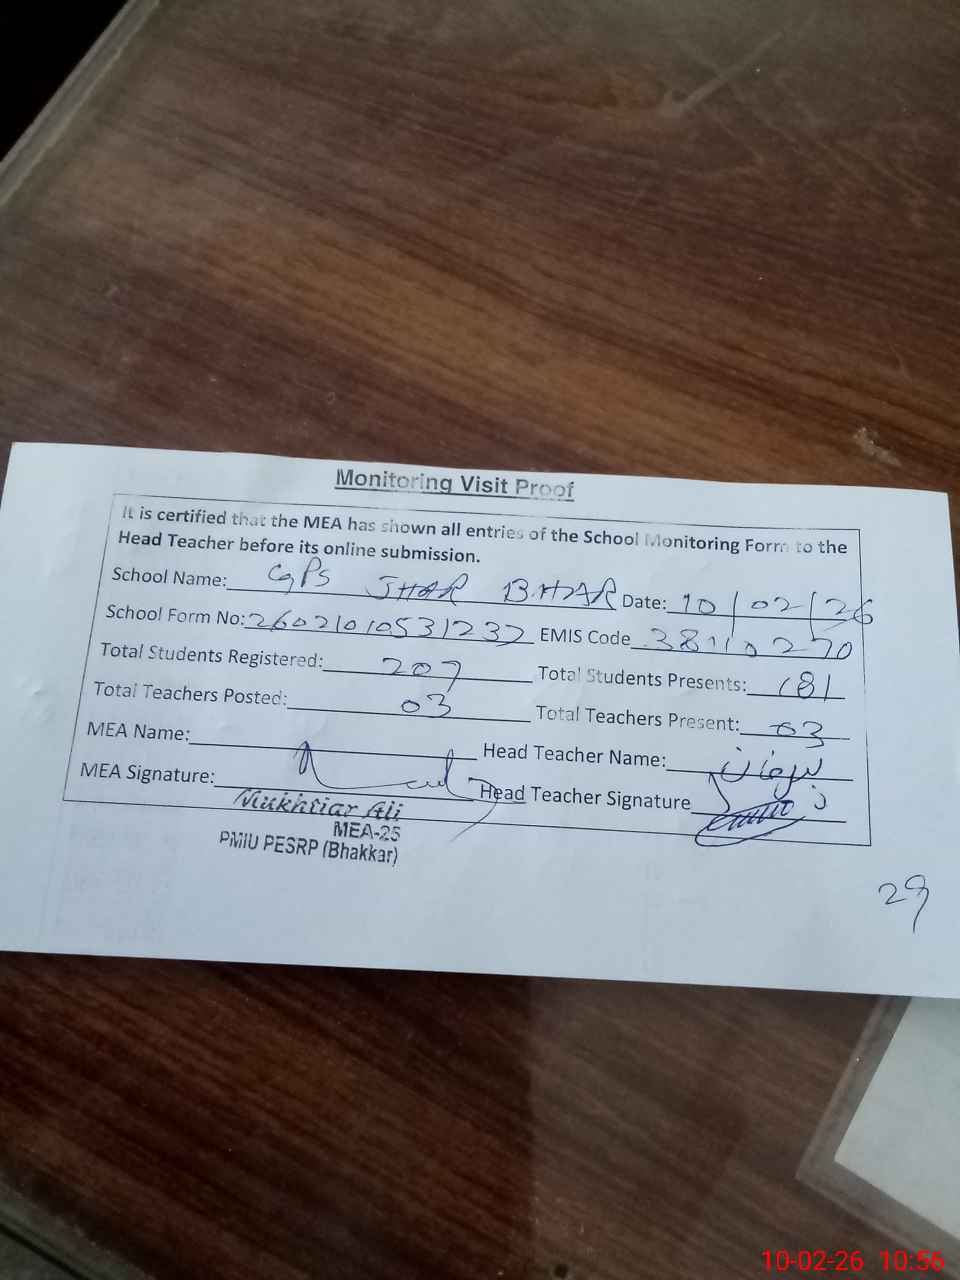 Monitoring Visit Proof
It is certified that the MEA has shown all entries of the School Monitoring Form to the
Head Teacher before its online submission.
School Name: GPS JHAR BHAR Date: 10/02/26
School Form No: 26021010531232 EMIS Code 38110270
Total Students Registered: 207 Total Students Presents: 181
Total Teachers Posted: 03 Total Teachers Present: 03
MEA Name: Head Teacher Name:
MEA Signature: Head Teacher Signature
Mukhtiar Ali
MEA-25
PMIU PESRP (Bhakkar)
29
10-02-26 10:56